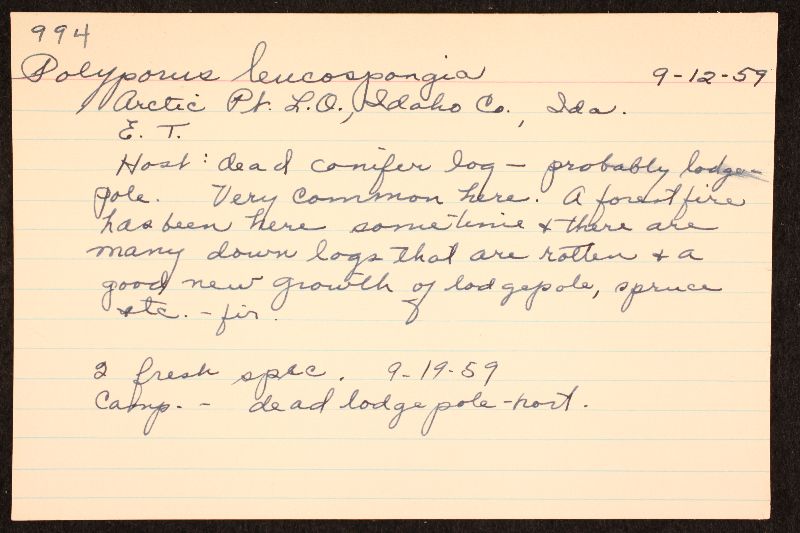 994
Polyporus leucospongia 9-12-59
Arctic Pt. L.O., Idaho Co., Ida.
E. T.
Host: dead conifer log - probably lodge-
pole. Very common here. A forest fire
has been here sometime & there are
many down logs that are rotten & a
good new growth of lodgepole, spruce
etc. - fir.
2 fresh spec. 9-19-59
Camp. - dead lodgepole-host.